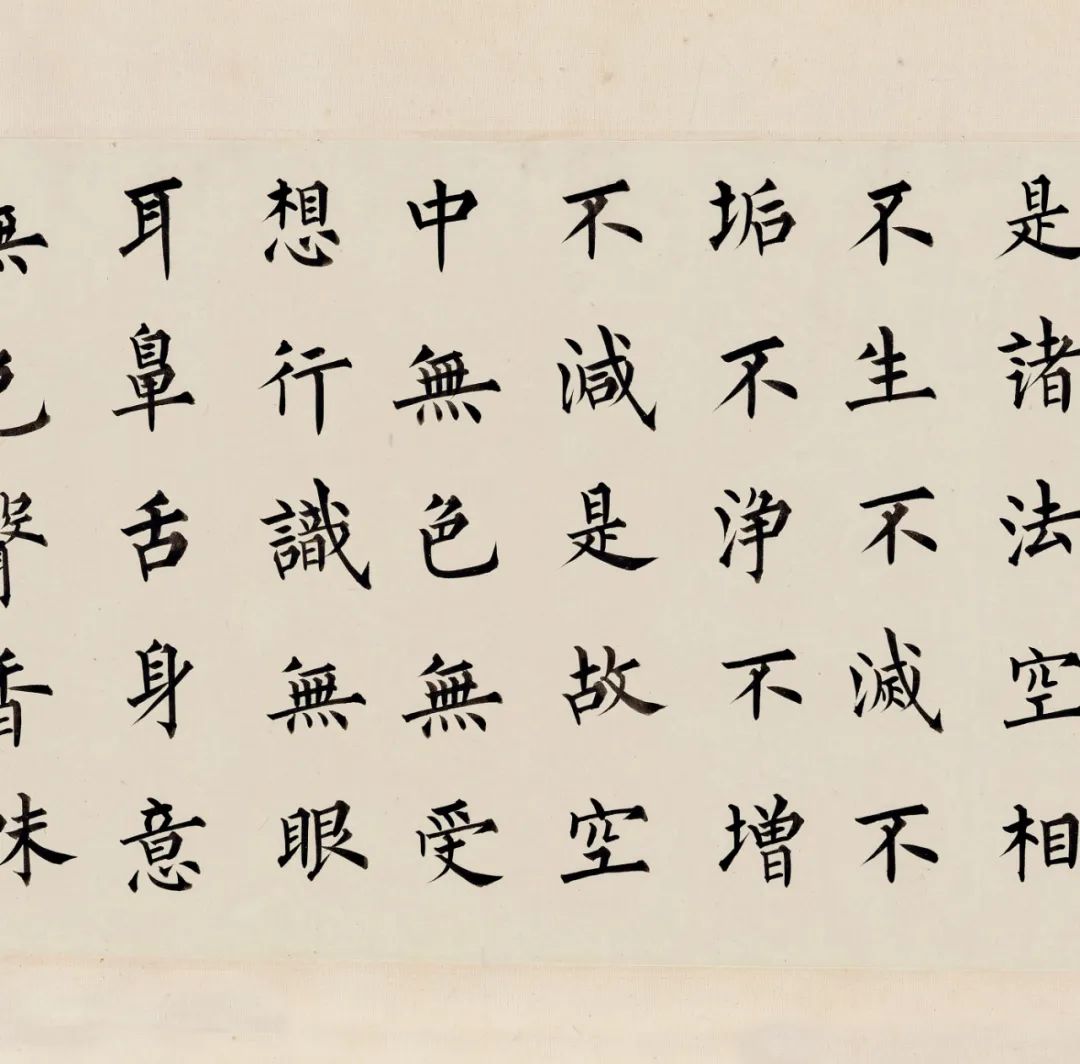 是諸法空相
不生不滅不
垢不浄不增
不減是故空
中無色無受
想行識無眼
耳鼻舌身意
無色聲香味